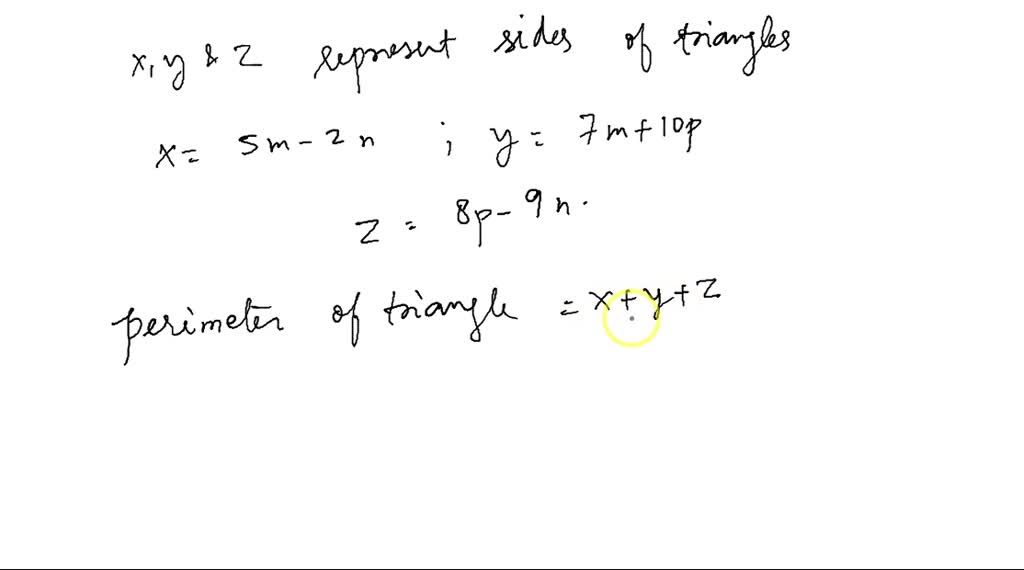 x, y & z represent sides of triangles
x = 5m - 2n ; y = 7m + 10p
z = 8p - 9n.
perimeter of triangle = x + y + z